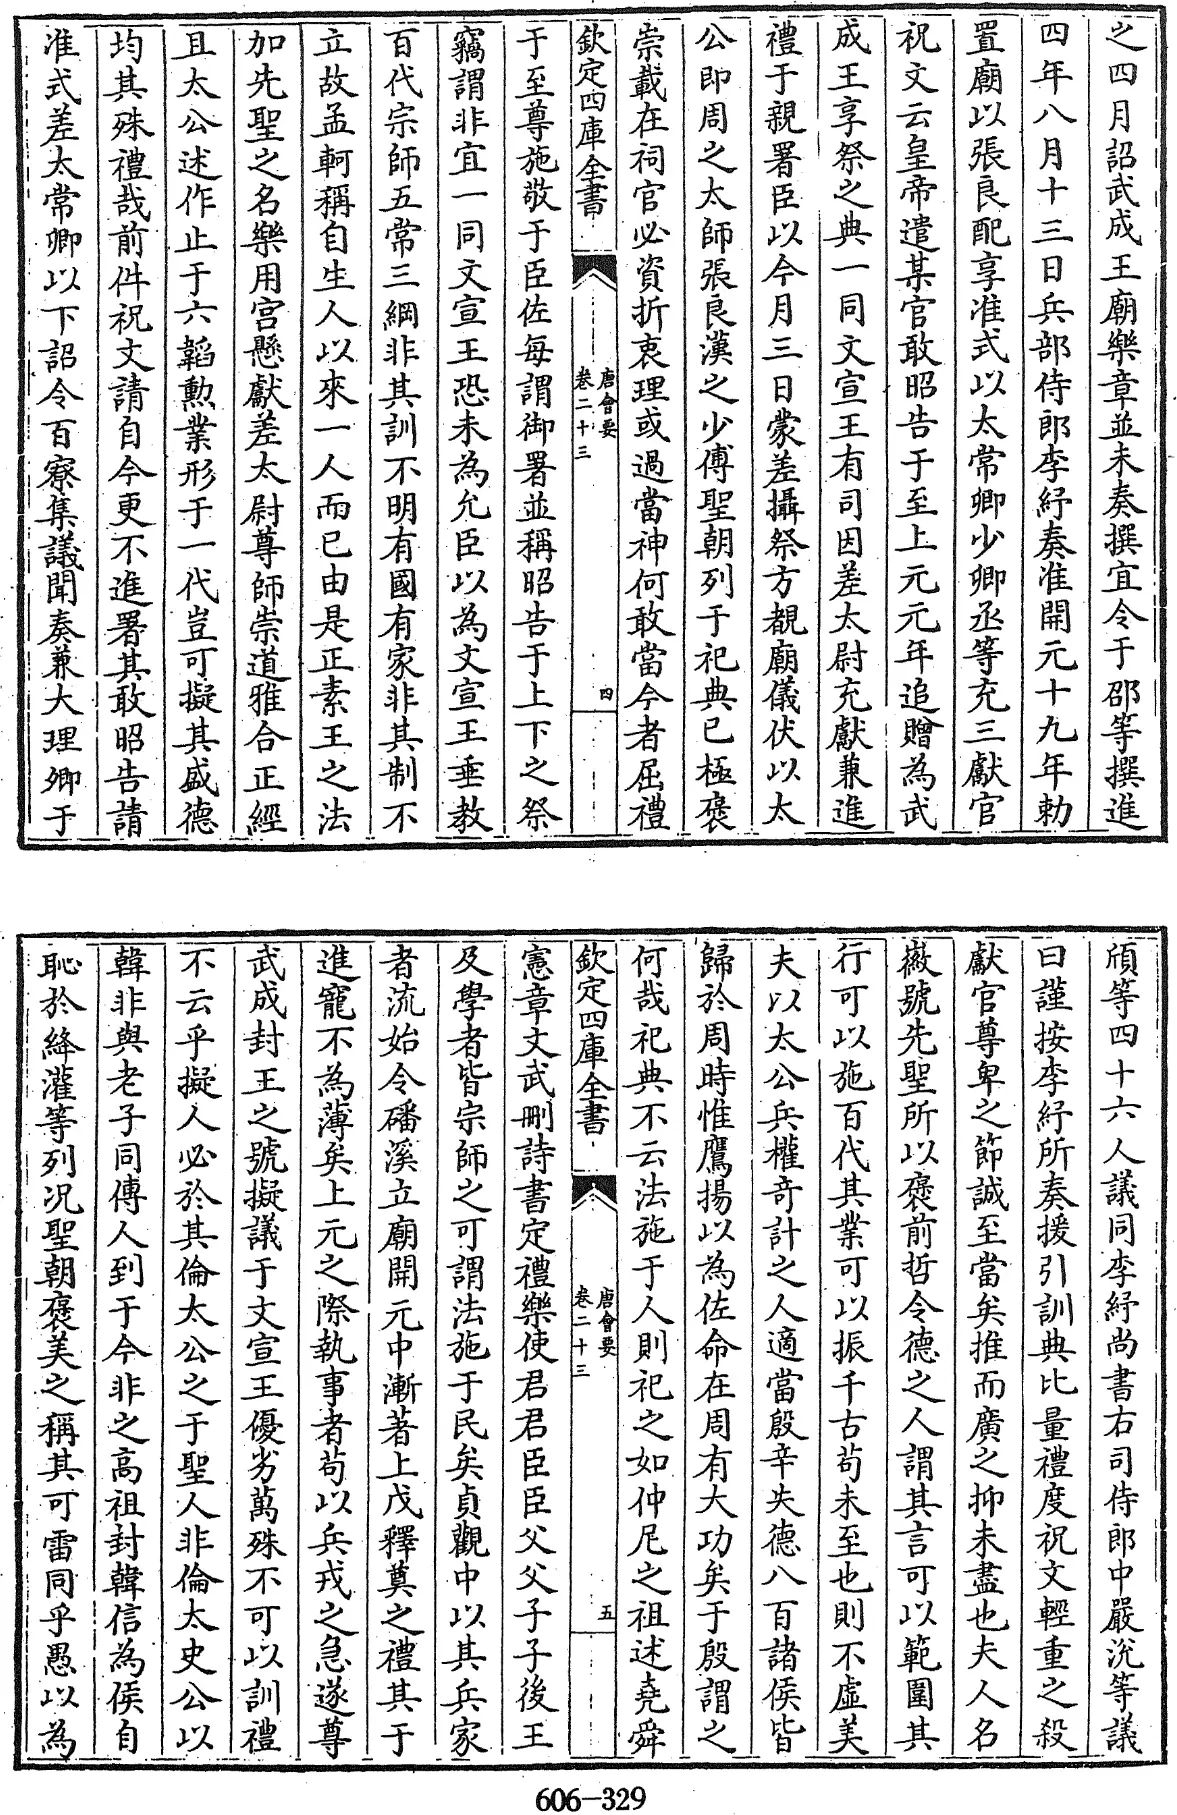 之四月詔武成王廟樂章並未奏撰宜令于邵等撰進
四年八月十三日兵部侍郎李紓奏准開元十九年勅
置廟以張良配享准式以太常卿少卿丞等充三獻官
祝文云皇帝遣某官敢昭告于至上元元年追贈為武
成王享祭之典一同文宣王有司因差太尉充獻兼進
禮于親署臣以今月三日蒙差攝祭方覩廟儀伏以太
公即周之太師張良漢之少傅聖朝列于祀典已極褒
崇載在祠官必資折衷理或過當神何敢當今者屈禮
欽定四庫全書
唐會要
卷二十三
四
于至尊施敬于臣佐每謂御署並稱昭告于上下之祭
竊謂非宜一同文宣王恐未為允臣以為文宣王垂教
百代宗師五常三綱非其訓不明有國有家非其制不
立故孟軻稱自生人以來一人而已由是正素王之法
加先聖之名樂用宮懸獻差太尉尊師崇道雅合正經
且太公述作止于六韜勲業形于一代豈可擬其盛德
均其殊禮哉前件祝文請自今更不進署其敢昭告請
准式差太常卿以下詔令百寮集議聞奏兼大理卿于
頎等四十六人議同李紓尚書右司侍郎中嚴涗等議
曰謹按李紓所奏援引訓典比量禮度祝文輕重之殺
獻官尊卑之節誠至當矣推而廣之抑未盡也夫人名
徽號先聖所以褒前哲令德之人謂其言可以範圍其
行可以施百代其業可以振千古苟未至也則不虛美
夫以太公兵權奇計之人適當殷辛失德八百諸侯皆
歸於周時惟鷹揚以為佐命在周有大功矣于殷謂之
何哉祀典不云法施于人則祀之如仲尼之祖述堯舜
欽定四庫全書
唐會要
卷二十三
五
憲章文武刪詩書定禮樂使君君臣臣父父子子後王
及學者皆宗師之可謂法施于民矣貞觀中以其兵家
者流始令磻溪立廟開元中漸著上戊釋奠之禮其于
進寵不為薄矣上元之際執事者苟以兵戎之急遂尊
武成封王之號擬議于文宣王優劣萬殊不可以訓禮
不云乎擬人必於其倫太公之于聖人非倫太史公以
韓非與老子同傳人到于今非之高祖封韓信為侯自
恥於絳灌等列况聖朝褒美之稱其可雷同乎愚以為
606-329